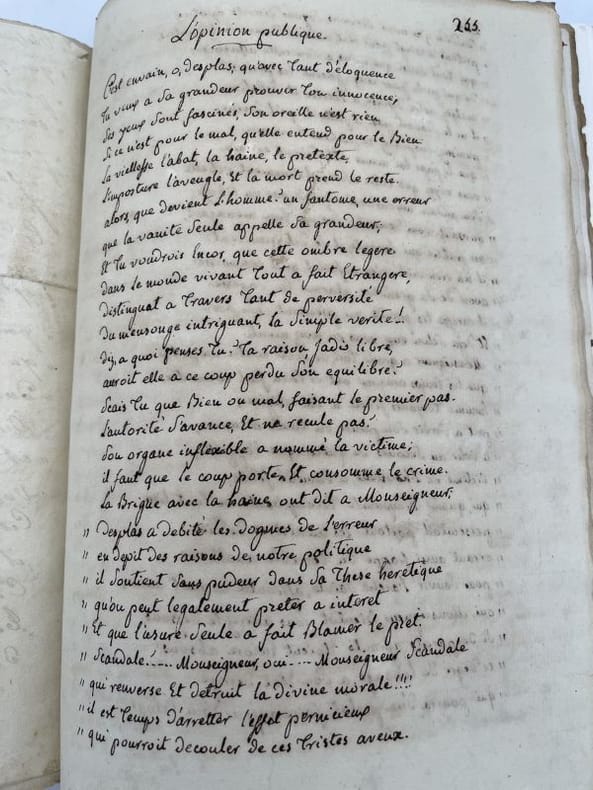 L'opinion publique.
255.
C'est envain, o, desplas, qu'avec tant d'éloquence
tu veux a Sa grandeur prouver ton innocence;
Ses yeux Sont fascinés, Son oreille n'est rien
Si ce n'est pour le mal, qu'elle entend pour le Bien.
la viellesse l'abat, la haine, le pretexte,
l'imposture l'aveugle, Et la mort prend le reste.
alors, que devient l'homme? un fantome, une erreur
que la vanité Seule appelle Sa grandeur;
Et tu voudrois Encor, que cette ombre legere
dans le monde vivant tout a fait Etrangere,
distinguat a travers tant de perversité
du mensonge intriguant, la Simple verité!..
dis, a quoi penses tu? ta raison, Jadis libre,
auroit elle a ce coup perdu Son equilibre?
Scais tu que Bien ou mal, faisant le premier pas.
l'autorité S'avance, Et ne recule pas?
Son organe inflexible a nommé la victime;
il faut que le coup porte, Et consomme le crime.
La Brigue avec la haine, ont dit a Monseigneur:
" Desplas a debité les dogmes de l'erreur
" en depit des raisons de notre politique
" il Soutient Sans pudeur dans Sa These heretique
" qu'on peut legalement preter a interet
" Et que l'usure Seule a fait Blamer le pret.
" Scandale!.... Monseigneur, oui.... Monseigneur Scandale
" qui renverse Et detruit la divine morale!!!!
" il est temps d'arretter l'effet pernicieux
" qui pourroit decouler de ces tristes aveux.